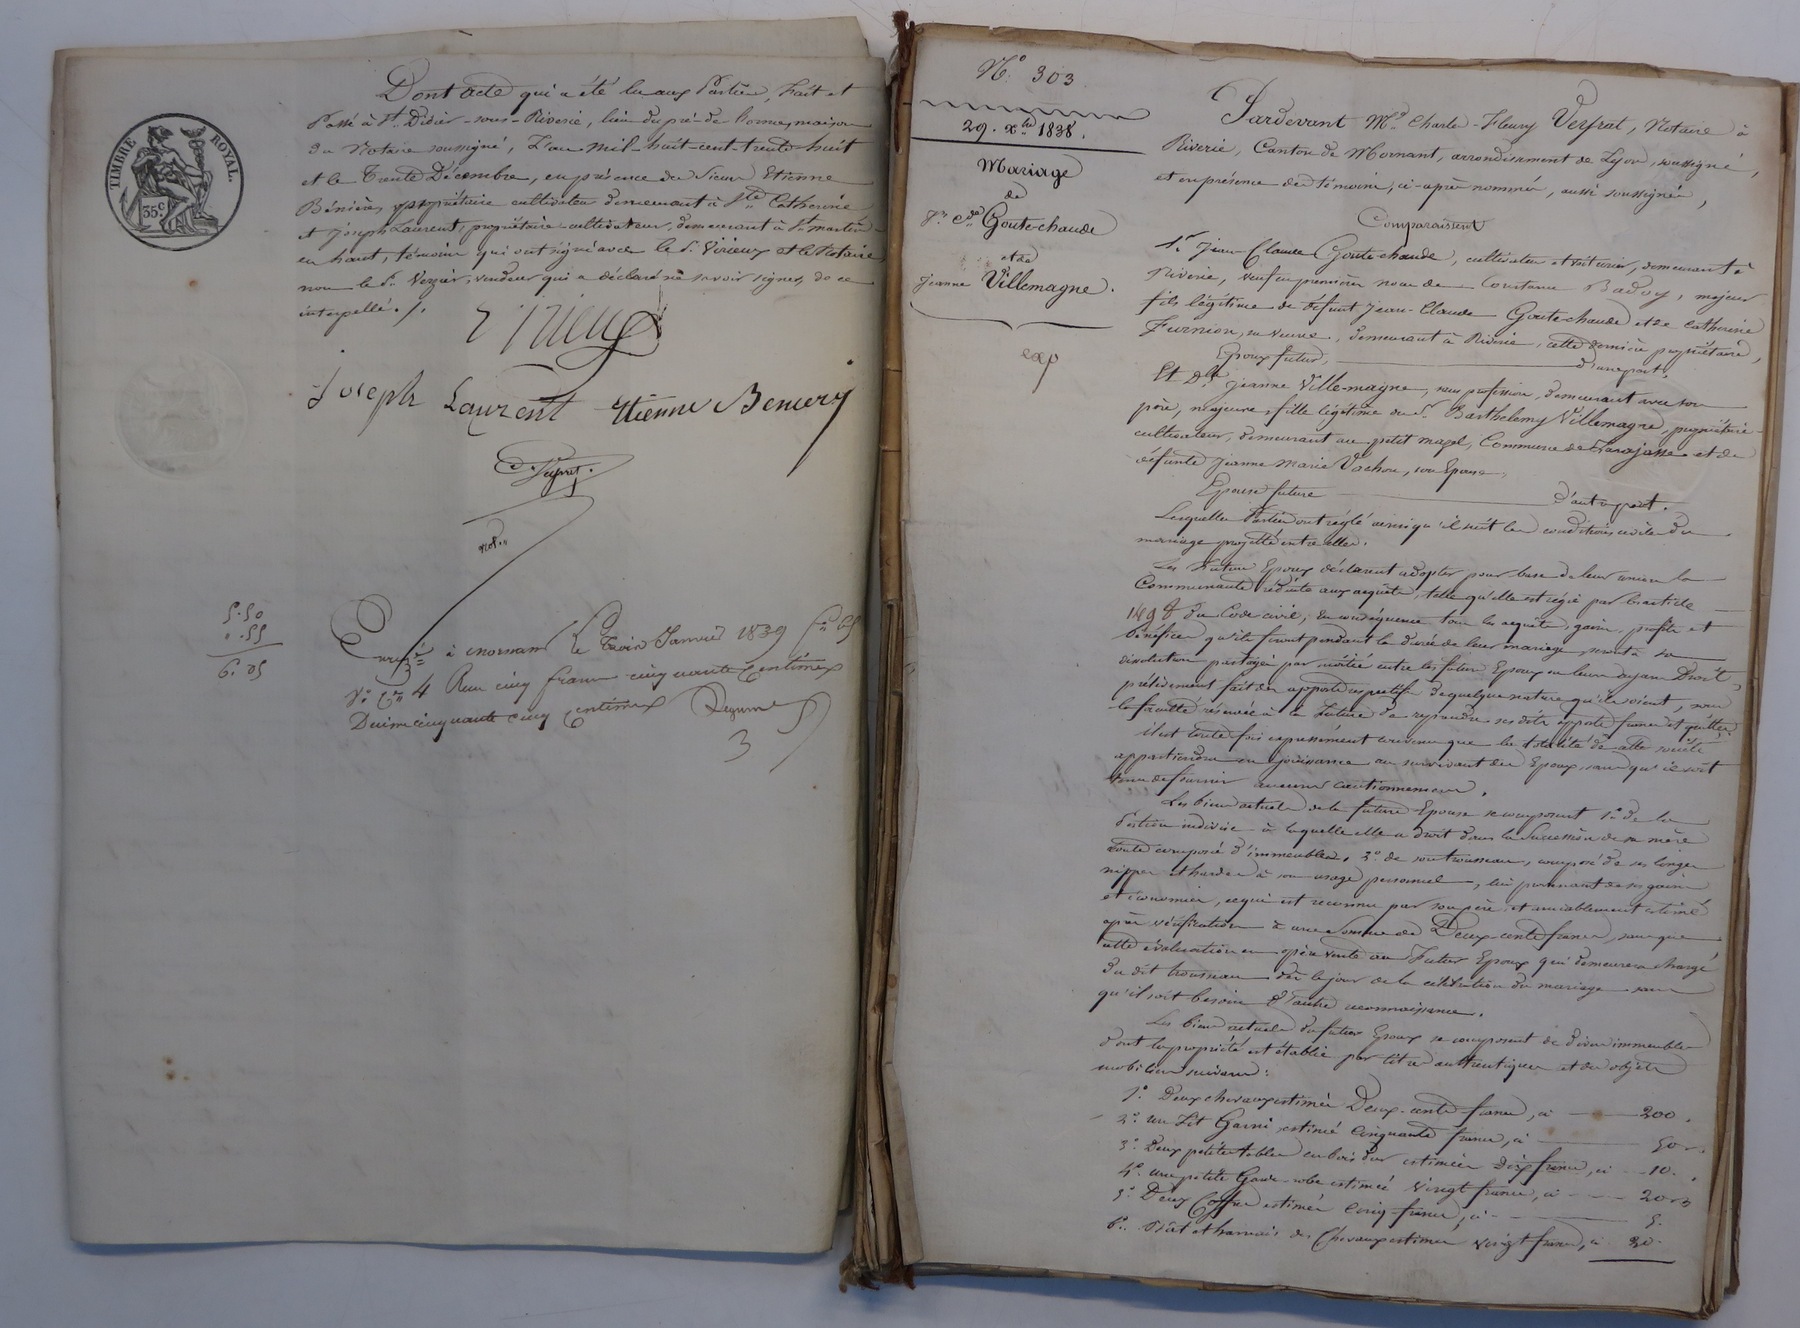 TIMBRE ROYAL.
35c
Dont acte qui a été lu aux Parties, Fait et
Passé à St. Didier-sous-Riverie, lieu du pré de lorme, maison
du Notaire soussigné, L'an Mil-huit-cent-trente-huit
et le trente Décembre, en présence des Sieurs Etienne
propriétaire cultivateur demeurant à Ste Catherine
et Joseph Laurent, propriétaire-cultivateur, demeurant à St martin-
en haut, témoins qui ont signé avec le S. Virieux et le Notaire
non le Sr. Verzier, vendeur qui a déclaré ne savoir signer, de ce
interpellé ./.
Virieux
Joseph Laurent Etienne
not.
5.50
..55
6.05
à mornant le trois Janvier 1839
4 Reçu cinq francs cinquante centimes
Décime cinquante cinq centimes
3
N.o 303
29. Xbre 1838.
Mariage
de
Jn Cde Goutechaude
et de
jeanne Villemagne.
exp
Pardevant Me Charles-Fleury Notaire à
Riverie, Canton de Mornant, arrondissement de Lyon, soussigné,
et en présence des témoins, ci-après nommés, aussi soussignés,
Comparaissent
1.º Jean-Claude Goutechaude, cultivateur et voiturier, demeurant à
Riverie, veuf en premières noces de Constance Badoy, majeur
fils légitime de défunt Jean-Claude Goutechaude et de Catherine
Furnion, sa veuve, demeurant à Riverie, cette dernière propriétaire,
Epoux futur, d'une part,
Et Dlle jeanne Ville-magne, sans profession, demeurant avec son
père, majeure, fille légitime du Sr. Barthelemy Villemagne, propriétaire-
cultivateur, demeurant au petit magel, Commune de Larajasse et de
défunte Jeanne Marie Vachon, son Epouse,
Epouse future d'autre part.
Lesquelles Parties ont réglé ainsi qu'il suit les conditions civiles du
mariage projetté entre elles.
Les Futurs Epoux déclarent adopter pour base de leur union la
Communauté réduite aux acquêts, telle qu'elle est régie par l'article
1498 du Code civil; en conséquence tous les acquêts, gains, profits et
bénéfices qu'ils feront pendant la durée de leur mariage, seront à sa
dissolution partagés par moitié entre les futurs Epoux ou leurs ayans Droit,
prélèvement fait des apports respectifs de quelque nature qu'ils soient, sous
la faculté réservée à la Future de reprendre ses dits apports francs et quittes.
il est toute fois expressément convenu que la totalité de cette société
appartiendra en jouissance au survivant des Epoux, sans qu'il soit
tenu de fournir aucun cautionnement.
Les biens actuels de la future Epouse se composent 1.º de la
Portion indivise à laquelle elle a droit dans la Succession de sa mère
toute composée d'immeubles. 2.º de son trousseau, composé de ses linges
nippes et hardes à son usage personnel, lui provenant de ses gains
et économies, ce qui est reconnu par son père, et amiablement estimé
après vérification à une Somme de Deux-cents francs, sans que
cette évaluation en opère vente au Futur Epoux qui demeurera chargé
du dit trousseau dès le jour de la célébration du mariage sans
qu'il soit besoin d'autre reconnaissance.
Les biens actuels du futur Epoux se composent de divers immeubles
dont la propriété est établie par titres authentiques et des objets
mobiliers suivans:
1.º Deux chevaux estimés Deux-cents francs, ci 200.
2.º un Lit Garni, estimé Cinquante francs, ci 50.
3.º Deux petites tables en bois dur estimées Dix francs, ci 10.
4.º une petite Garde-robe estimée vingt francs, ci 20.
5.º Deux Coffres estimés Cinq francs, ci 5.
6.º Bât et harnais des Chevaux estimés vingt francs, ci 20.